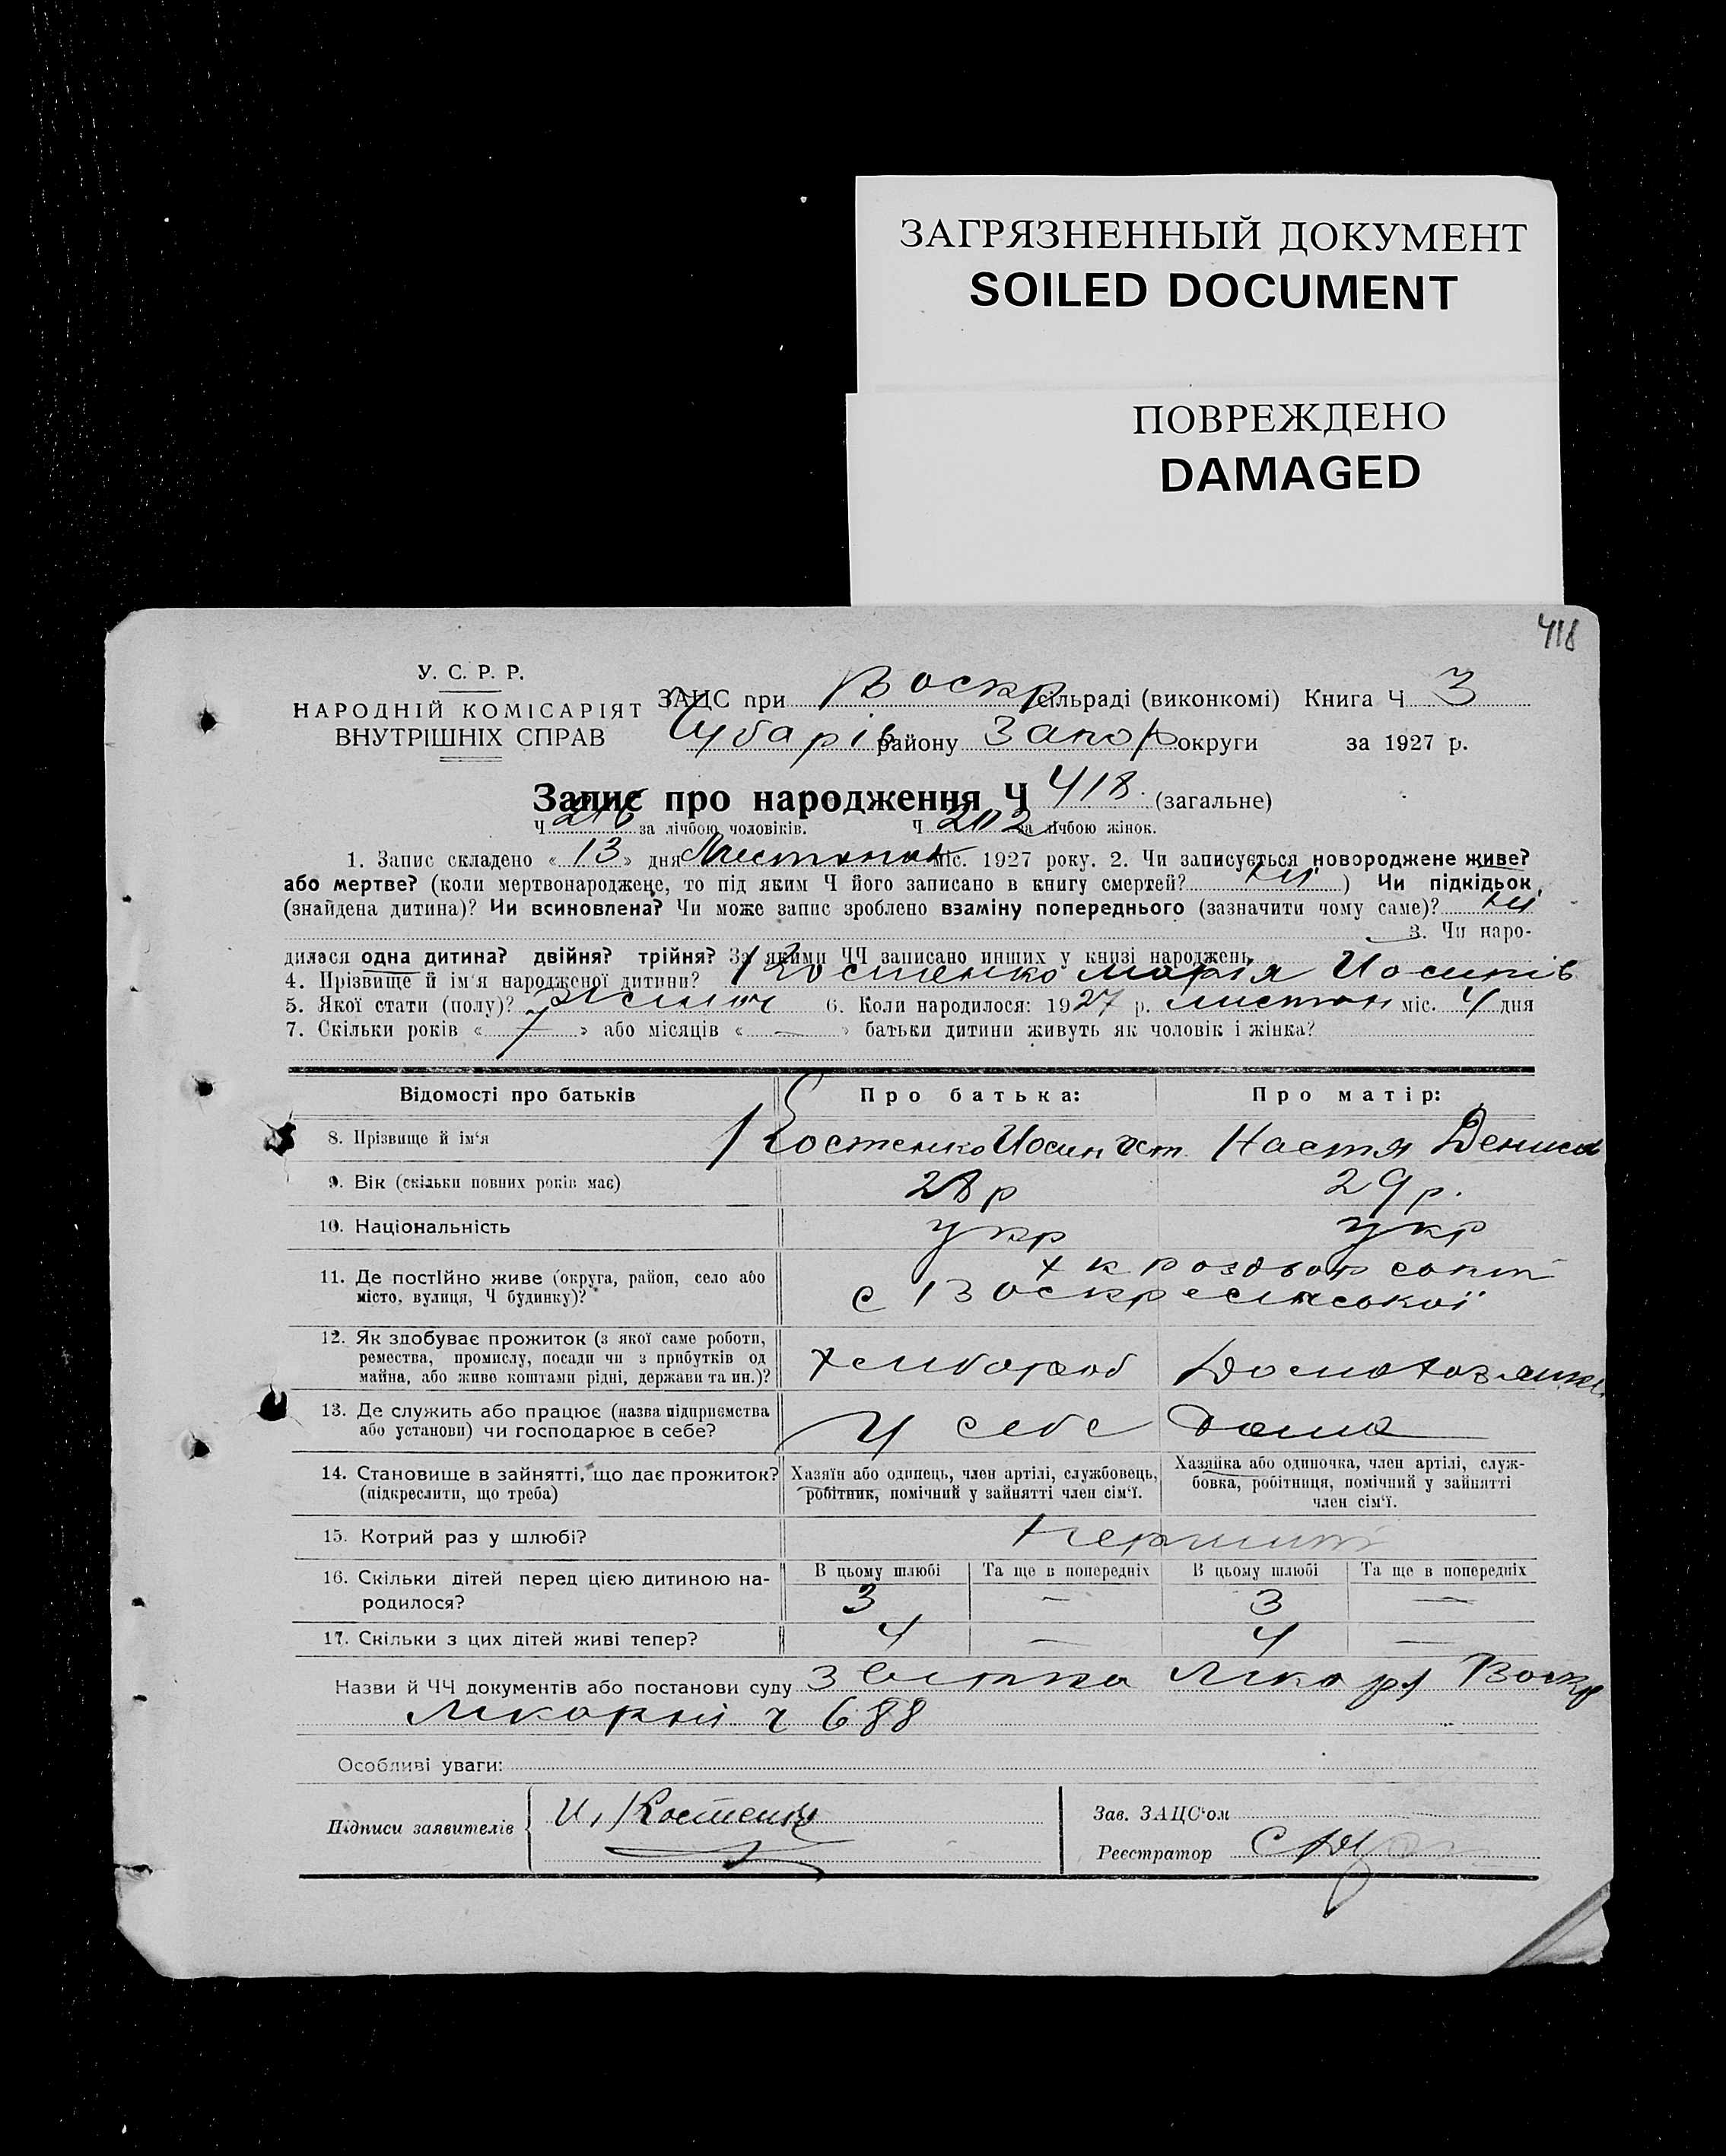 ЗАГРЯЗНЕННЫЙ ДОКУМЕНТ
SOILED DOCUMENT
ПОВРЕЖДЕНО
DAMAGED
418
У. С. Р. Р.
НАРОДНІЙ КОМІСАРІЯТ
ВНУТРІШНІХ СПРАВ
ЗАЦС при Воскр сільраді (виконкомі) Книга Ч 3
Чубарів району Запор округи за 1927 р.
Запис про народження Ч 418. (загальне)
Ч 216 за лічбою чоловіків. Ч 202 за лічбою жінок.
1. Запис складено « 13 » дня Листопад міс. 1927 року. 2. Чи записується новороджене живе?
або мертве? (коли мертвонароджене, то під яким Ч його записано в книгу смертей? ні ) Чи підкідьок,
(знайдена дитина)? Чи всиновлена? Чи може запис зроблено взаміну попереднього (зазначити чому саме)? ні
3. Чи наро-
дилася одна дитина? двійня? трійня? За якими ЧЧ записано инших у книзі народжень
4. Прізвище й ім'я народженої дитини? Костенко марія Иосипів
5. Якої стати (полу)? жиноч 6. Коли народилося: 1927 р. листоп міс. 4 дня
7. Скільки років « 7 » або місяців « — » батьки дитини живуть як чоловік і жінка?
Відомості про батьків Про батька: Про матір:
8. Прізвище й ім'я Костенко Иосип Настя Дениса
9. Вік (скільки повних років має) 28 р 29 р.
10. Національність укр укр
11. Де постійно живе (округа, район, село або
місто, вулиця, Ч будинку)?
с Воскресенської
12. Як здобуває прожиток (з якої саме роботи,
ремества, промислу, посади чи з прибутків од
майна, або живе коштами рідні, держави та ин.)? хлибороб Домохозяика
13. Де служить або працює (назва підприємства
або установи) чи господарює в себе? У себе дома
14. Становище в зайнятті, що дає прожиток?
(підкреслити, що треба)
Хазяїн або одинець, член артілі, службовець,
робітник, помічний у зайнятті член сім'ї.
Хазяйка або одиночка, член артілі, служ-
бовка, робітниця, помічний у зайнятті
член сім'ї.
15. Котрий раз у шлюбі? перший
16. Скільки дітей перед цією дитиною на-
родилося?
В цьому шлюбі Та ще в попередніх В цьому шлюбі Та ще в попередніх
3 — 3 —
17. Скільки з цих дітей живі тепер? 4 — 4 —
Назви й ЧЧ документів або постанови суду Воскр
лікарні ч 688
Особливі уваги:
Підписи заявителів И. Костенко
Зав. ЗАЦС'ом
Реєстратор